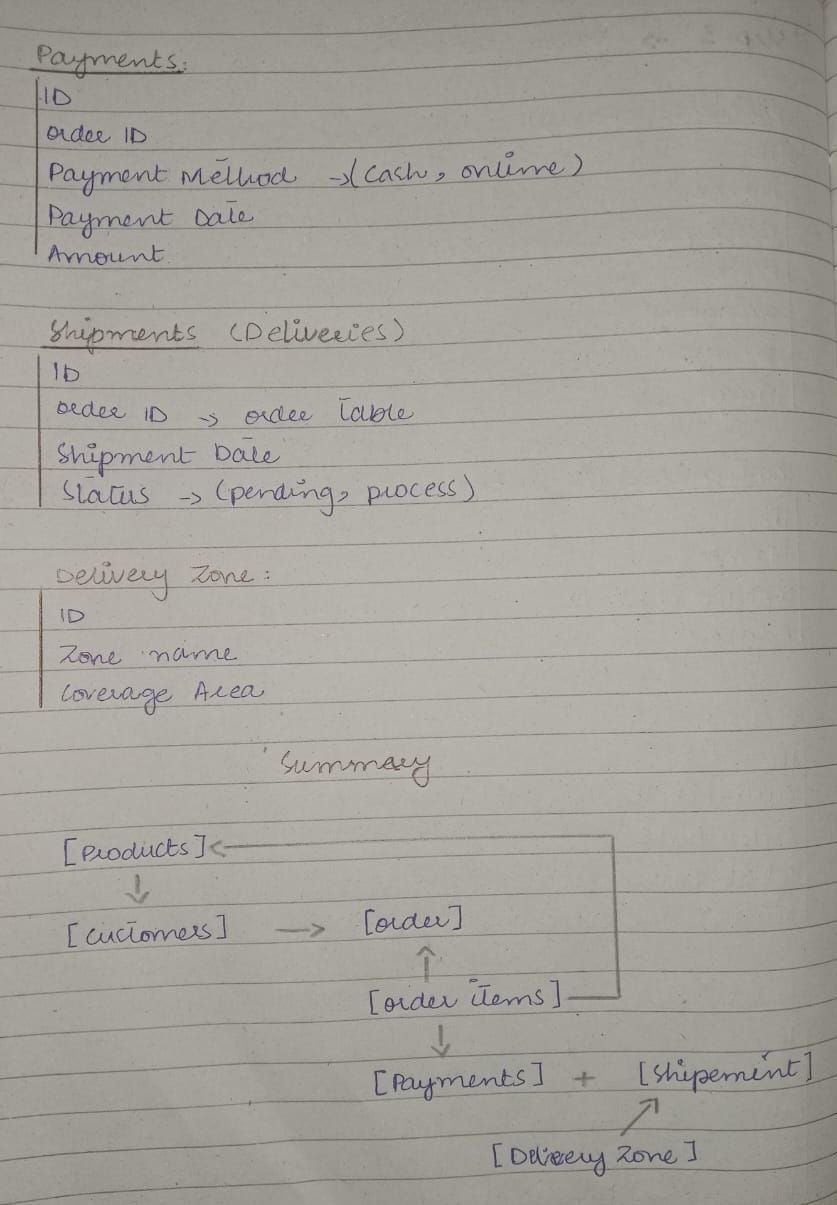 Payments:
ID
order ID
Payment Method → (cash, online)
Payment Date
Amount
Shipments (Deliveries)
ID
order ID → order Table
Shipment Date
Status → (pending, process)
Delivery Zone:
ID
Zone name
Coverage Area
Summary
[Products] ←
↓
[Customers] → [order]
↑
[order items]
↓
[Payments] + [Shipement]
↗
[Delivery Zone]